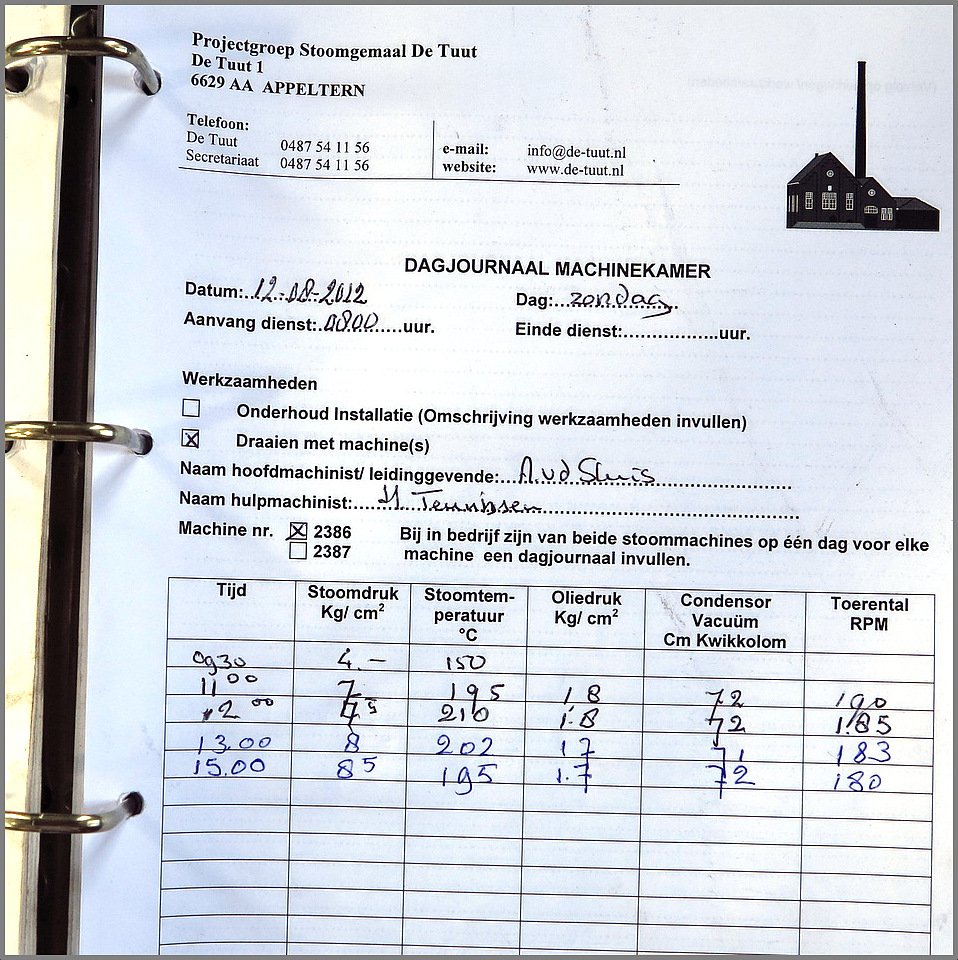 Projectgroep Stoomgemaal De Tuut
De Tuut 1
6629 AA APPELTERN
Telefoon:
De Tuut 0487 54 11 56
Secretariaat 0487 54 11 56
e-mail: info@de-tuut.nl
website: www.de-tuut.nl
DAGJOURNAAL MACHINEKAMER
Datum: 12-08-2012 Dag: zondag
Aanvang dienst: 0800 uur. Einde dienst:..................uur.
Werkzaamheden
Onderhoud Installatie (Omschrijving werkzaamheden invullen)
X Draaien met machine(s)
Naam hoofdmachinist/ leidinggevende: A.vd Sluis
Naam hulpmachinist: H Teunissen
Machine nr. X 2386 Bij in bedrijf zijn van beide stoommachines op één dag voor elke
2387 machine een dagjournaal invullen.
Tijd Stoomdruk Stoomtem- Oliedruk Condensor Toerental
Kg/ cm2 peratuur Kg/ cm2 Vacuüm RPM
°C Cm Kwikkolom
0930 4.– 150
11 00 7 195 1.8 72 190
12 00 7 5 210 1.8 72 185
13.00 8 202 1.7 71 183
15.00 8 5 195 1.7 72 180